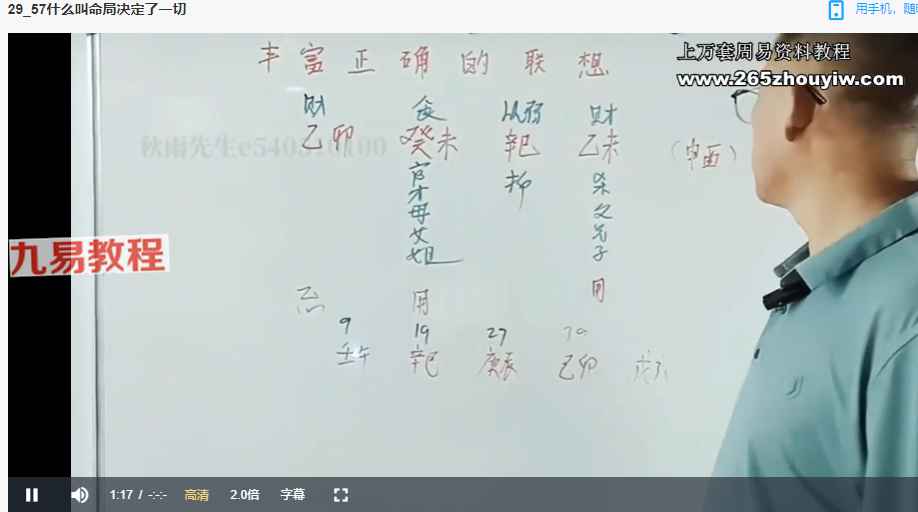 29_57什么叫命局决定了一切
用手机，随
上万套周易资料教程
www.265zhouyiw.com
丰富正确的联想
财 食 从弱 财
乙卯 癸未 辛巳 乙未 （申酉）
秋雨先生e540510100
官 抑 杀
才 父
母 兄
女 子
姐
九易教程
忌 用 用
9 19 29 39
壬午 辛巳 庚辰 己卯
1:17 / -:-:- 高清 2.0倍 字幕